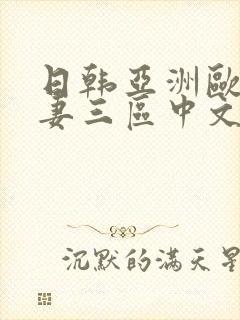 日韩亞洲歐
妻三區中文
沉默的满天星